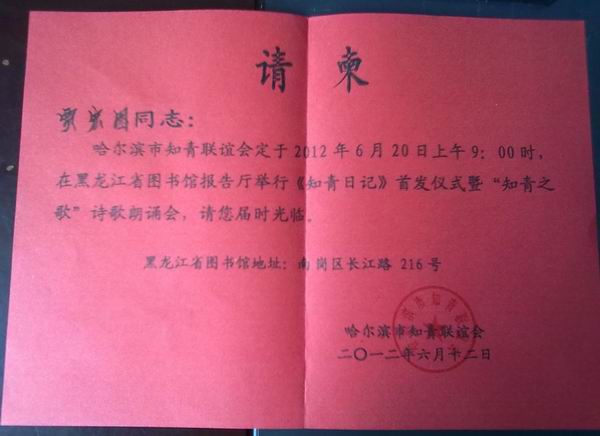 请柬
贾宏图同志：
哈尔滨市知青联谊会定于2012年6月20日上午9：00时，
在黑龙江省图书馆报告厅举行《知青日记》首发仪式暨“知青之
歌”诗歌朗诵会，请您届时光临。
黑龙江省图书馆地址：南岗区长江路216号
哈尔滨市知青联谊会
二〇一二年六月十二日